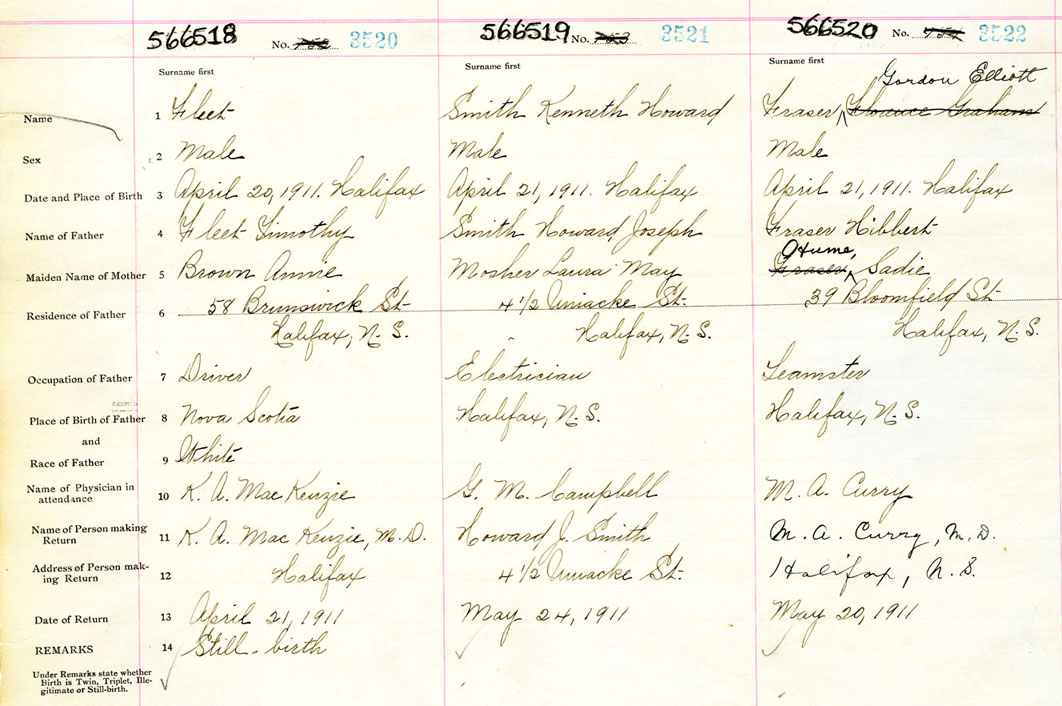 566518 No. 752 3520 566519 No. 753 3521 566520 No. 754 3522
Surname first Surname first Surname first
Gordon Elliott
Name 1 Fleet Smith Kenneth Howard Fraser, Graham
Sex 2 Male Male Male
Date and Place of Birth 3 April 20, 1911. Halifax April 21, 1911. Halifax April 21, 1911. Halifax
Name of Father 4 Fleet Timothy Smith Howard Joseph Fraser Hibbert
Hume,
Maiden Name of Mother 5 Brown Annie Mosher Laura May Fraser, Sadie
Residence of Father 6 58 Brunswick St. 4 1/2 Uniacke St. 39 Bloomfield St
Halifax, N.S. Halifax, N.S. Halifax, N.S.
Occupation of Father 7 Driver Electrician Teamster
Place of Birth of Father 8 Nova Scotia Halifax, N.S. Halifax, N.S.
and
Race of Father 9 White
Name of Physician in
attendance 10 K. A. MacKenzie G. M. Campbell M. A. Curry
Name of Person making
Return 11 K. A. MacKenzie, M.D. Howard J. Smith M. A. Curry, M.D.
Address of Person mak-
ing Return 12 Halifax 4 1/2 Uniacke St. Halifax, N.S.
Date of Return 13 April 21, 1911 May 24, 1911 May 20, 1911
REMARKS 14 Still-birth
Under Remarks state whether
Birth is Twin, Triplet, Ille-
gitimate or Still-birth.